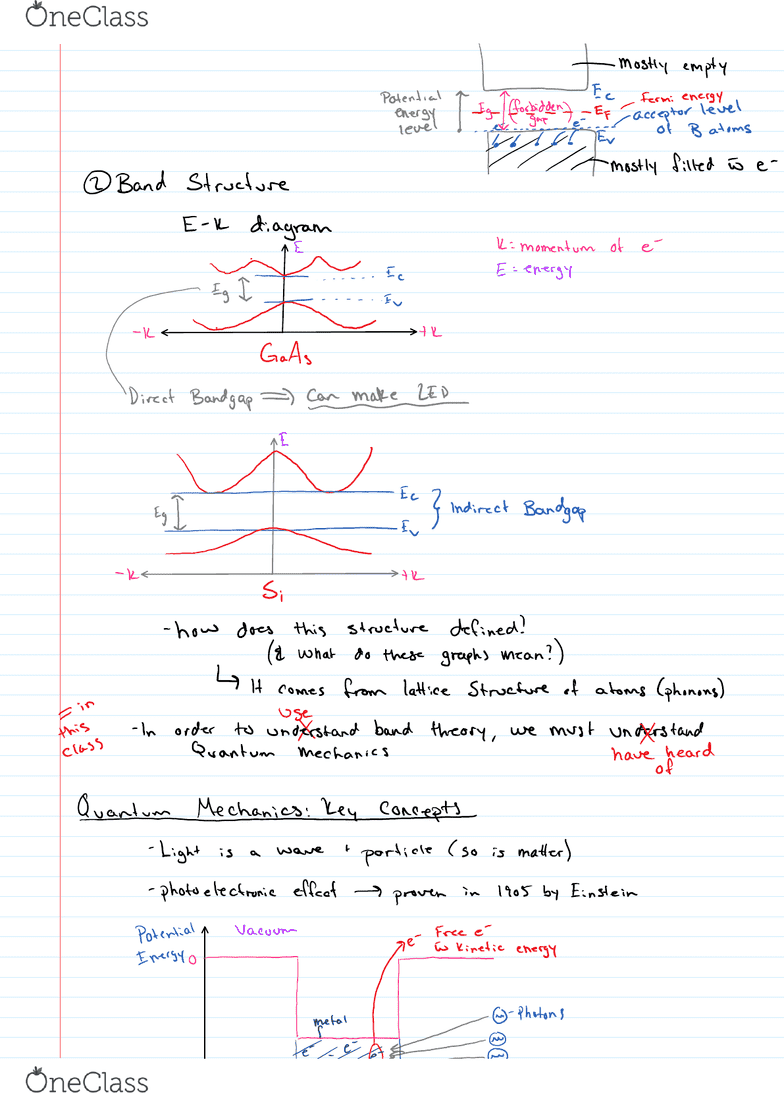 OneClass
mostly empty
Potential
energy
level
Eg
(forbidden
gap)
Ec
EF
Fermi energy
acceptor level
of B atoms
e-
Ev
mostly filled w̄ e-
② Band Structure
E-k diagram
k: momentum of e-
E: energy
E
Ec
Eg
Ev
-k
+k
GaAs
Direct Bandgap ⟹ Can make LED
E
Ec
Eg
Indirect Bandgap
Ev
-k
+k
Si
- how does this structure defined?
(& what do these graphs mean?)
↳ It comes from lattice structure of atoms (phonons)
= in
this
class
use
- In order to understand band theory, we must understand
Quantum mechanics
have heard
of
Quantum Mechanics: Key Concepts
- Light is a wave + particle (so is matter)
- photoelectronic effect → proven in 1905 by Einstein
Potential
Energy
0
Vacuum
e-
Free e-
w̄ kinetic energy
metal
e-
e-
- Photons
OneClass